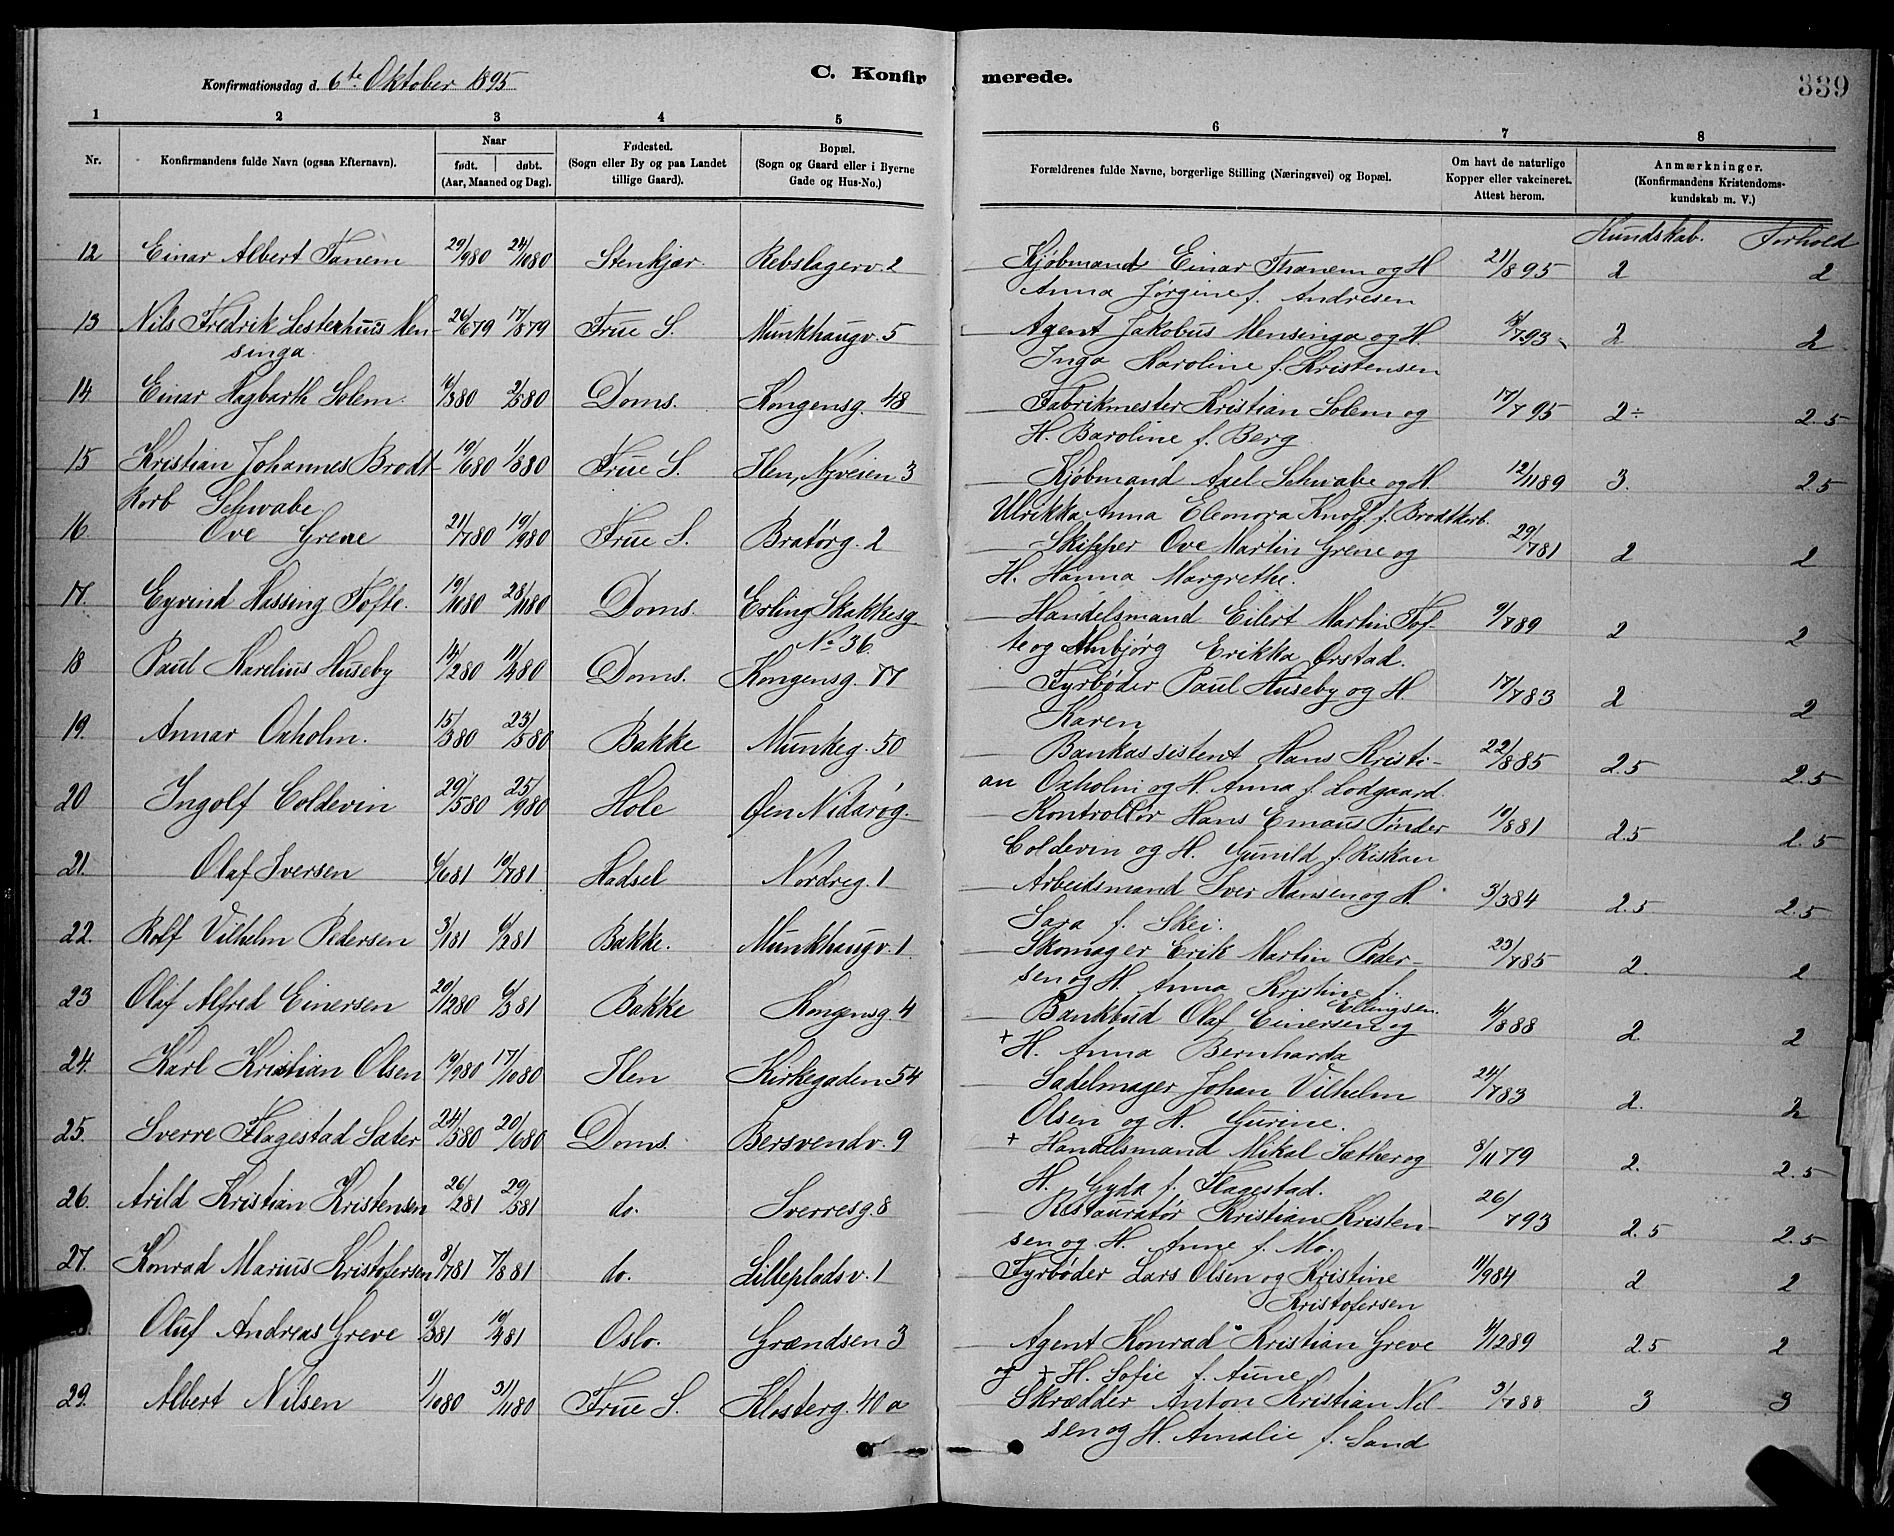 Konfirmationsdag d. 6te Oktober 1895
C. Konfirmerede.
339
1 2 3 4 5 6 7 8
Nr.
Konfirmandens fulde Navn (ogsaa Efternavn).
Naar
født. døbt.
(Aar, Maaned og Dag).
Fødested.
(Sogn eller By og paa Landet
tillige Gaard).
Bopæl.
(Sogn og Gaard eller i Byerne
Gade og Hus-No.)
Forældrenes fulde Navne, borgerlige Stilling (Næringsvei) og Bopæl.
Om havt de naturlige
Kopper eller vakcineret.
Attest herom.
Anmærkninger.
(Konfirmandens Kristendoms-
kundskab m. V.)
Kundskab. Forhold
12 Einar Albert Fanem 29/980 24/1080 Stenkjær Rebslagerv. 2 Kjøbmand Einar Thanem og H 21/895 2 2
Anna Jørgine f. Andresen
13 Nils Fredrik Lesterhuis Men- 26/679 17/879 Frue S. Munkhaugv. 5 Agent Jakobus Mensinga og H. 2 2
singa Inga Karoline f. Kristensen
14 Einar Hagbarth Solem 2/580 Doms. Kongensg. 48 Fabrikmester Kristian Solem og 17/795 2÷ 2.5
H. Baroline f. Berg
15 Kristian Johannes Brodt- 19/680 1/880 Frue S. Ilen, Nyveien 3 Kjøbmand Axel Schwabe og H. 12/1189 3. 2.5
korb Schwabe Ulrikka Anna Eleonora Knoff f. Brodtkorb
16 Ove Greve 21/780 19/980 Frue S. Bratørg. 2 Skipper Ove Martin Grene og 29/781 2 2
H. Hanna Margrethe.
17 Eyvind Hassing Tofte. 19/1080 28/1180 Doms. Erling Skakkesg Handelsmand Eilert Martin Tof- 9/789 2 2
No 36 te og Anbjørg Erikka Ørstad.
18 Paul Karelius Huseby 14/280 11/480 Doms. Kongensg. 77 Fyrbøder Paul Huseby og H. 17/783 2 2
Karen
19. Annar Oxholm. 15/380 23/580 Bakke Munkeg. 50 Bankassistent Hans Kristi- 22/885 2.5 2.5
an Oxholm og H. Anna f. Lodgaard
20 Ingolf Coldevin 29/580 25/980 Hole Øen Nidarøg. Kontrollør Hans Emaus Tønder 19/881 2.5 2.5
Coldevin og H. Gunild f. Riskan
21. Olaf Iversen 6/681 10/781 Hadsel Nordreg. 1 Arbeidsmand Iver Hansen og H. 3/384 2.5 2.5
Sara f. Skei.
22. Rolf Vilhelm Pedersen 3/181 6/381 Bakke. Munkhaugv. 1. Skomager Erik Martin Peder- 23/785 2. 2
sen og H. Anna Kristine f.
Ellingsen.
23 Olaf Alfred Einersen 20/1280 6/381 Bakke Kongensg. 4 Bankbud Olaf Einersen og 4/888 2. 2
+ H. Anna Bernharda
24. Karl Kristian Olsen 19/980 17/1080 Ilen Kirkegaden 54 Sadelmager Johan Vilhelm 24/783 2. 2
Olsen og H. Gurine.
25. Sverre Flagestad Sæter 24/380 20/680 Doms. Bersvendv. 9 + Handelsmand Mikal Sæther og 8/1179 2. 2.5
H. Gyda f. Flagestad.
26. Arild Kristian Kristensen 26/281 29/581 do. Sverresg. 8 Restauratør Kristian Kristen- 26/793 2.5 2.5
sen og H. Anne f. Mo.
27. Konrad Marius Kristofersen 8/781 7/881 do. Lilleplads v. 1 Fyrbøder Lars Olsen og Kristine 11/984 2 2
Kristofersen
Oluf Andreas Greve 9/381 10/481 Oslo. Grændsen 3 Agent Konrad Kristian Greve 4/1289 2.5 2
og + H. Sofie f. Aune
29. Albert Nilsen 1/1080 Frue S. Klosterg. 40 a Skrædder Anton Kristian Nil- 3/788 3 3
sen og H. Amalie f. Sand